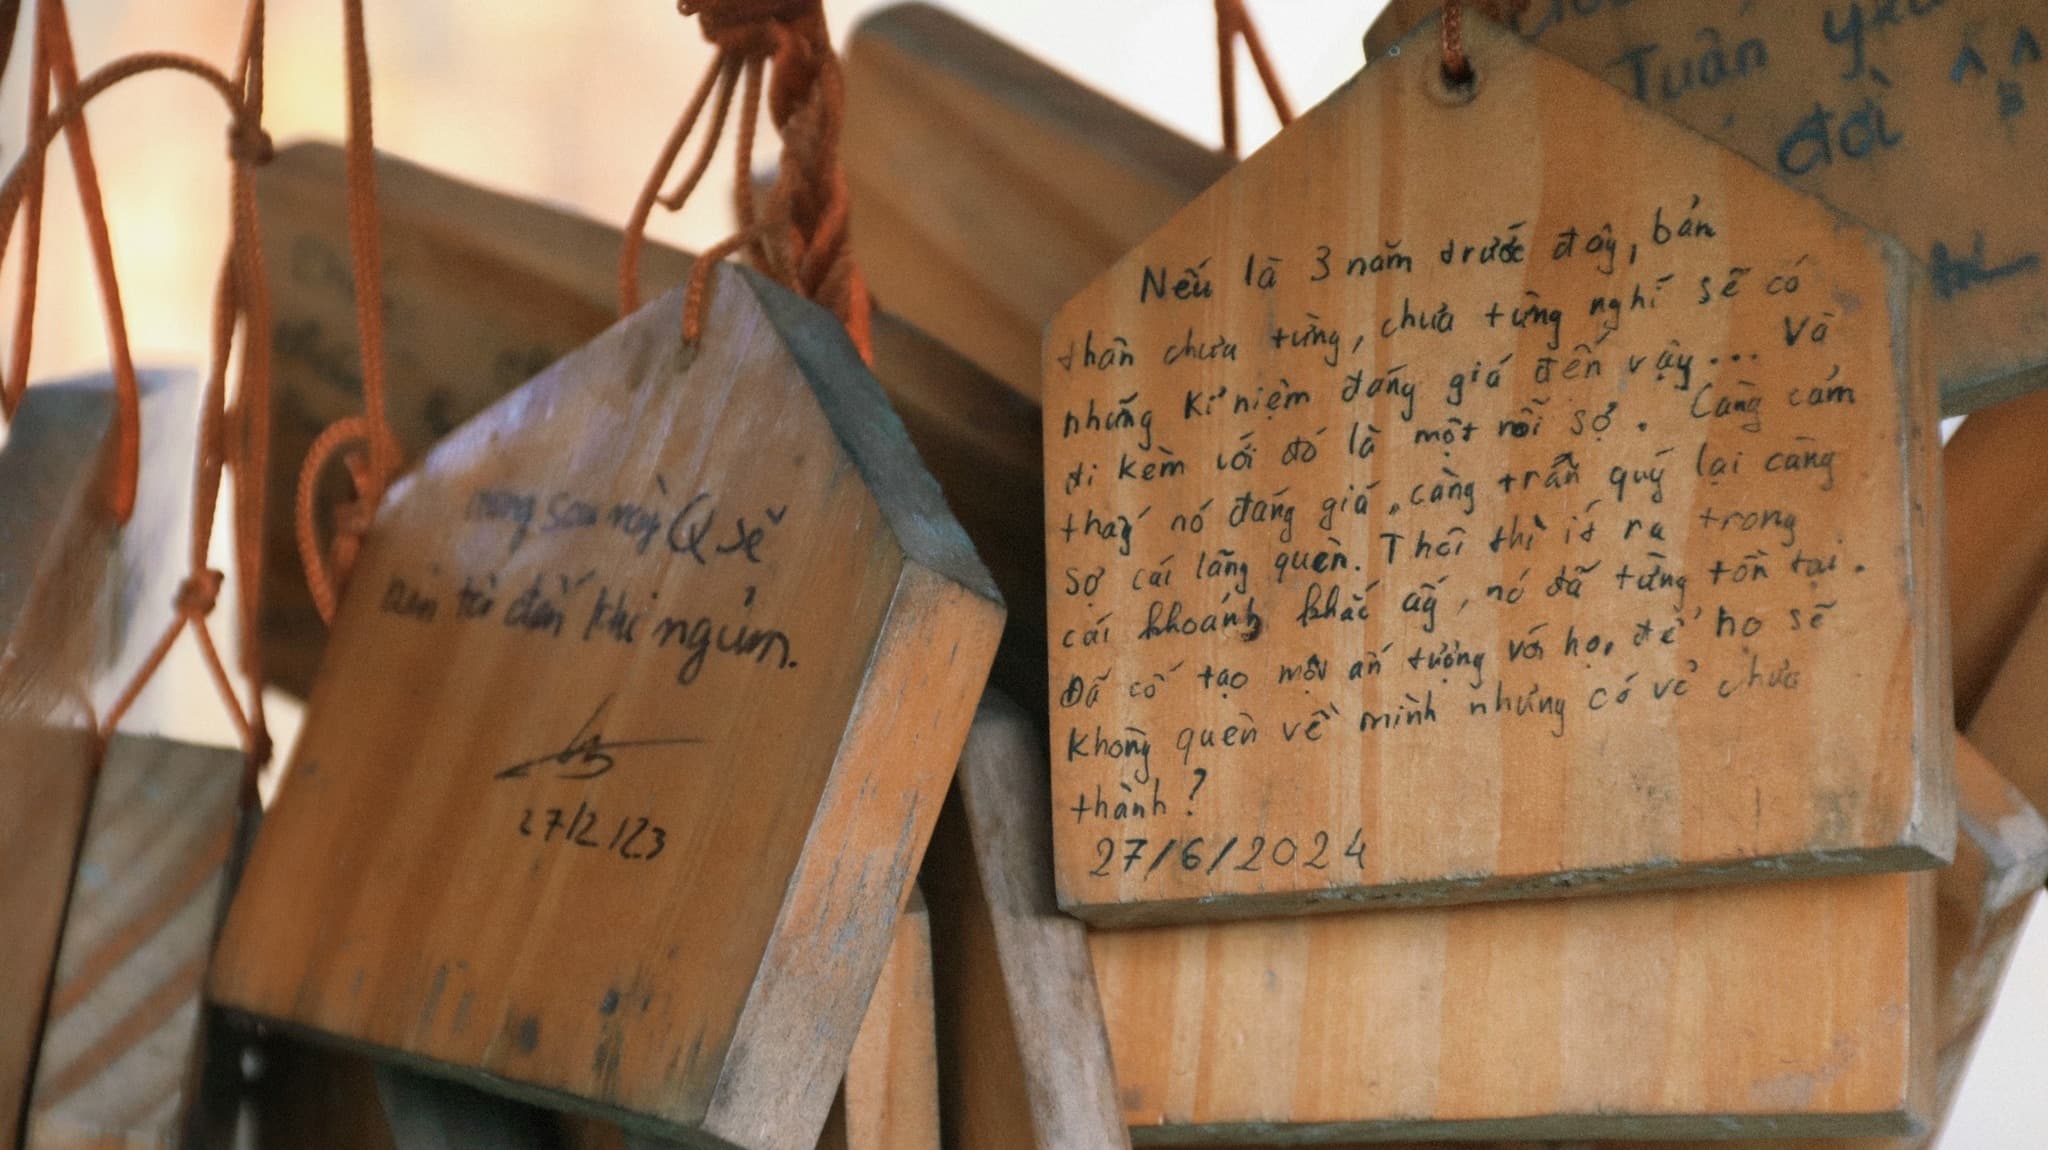 mong sau này Q sẽ
ăn từ đến khi ngủm.
27/12/23
Nếu là 3 năm trước đây, bản
thân chưa từng, chưa từng nghĩ sẽ có
những kỉ niệm đáng giá đến vậy... Và
đi kèm với đó là một nỗi sợ. Càng cảm
thấy nó đáng giá, càng trân quý lại càng
sợ cái lãng quên. Thôi thì ít ra trong
cái khoảnh khắc ấy, nó đã từng tồn tại.
Đã cố tạo một ấn tượng với họ, để họ sẽ
không quên về mình nhưng có vẻ chưa
thành?
27/6/2024
Tuấn yêu
đời